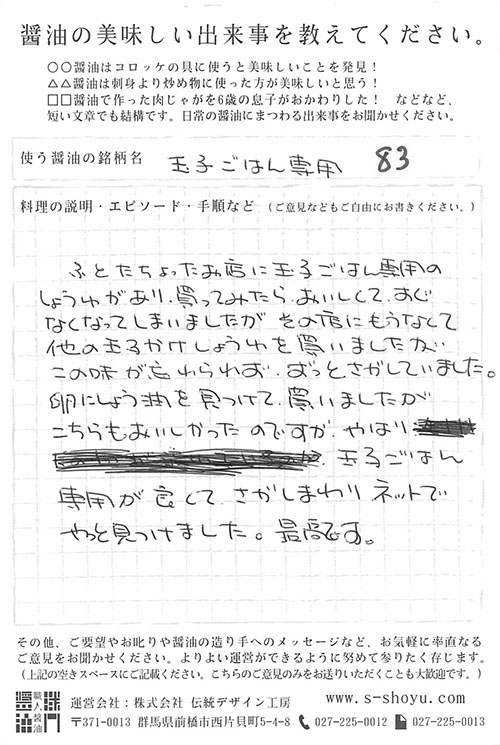 醤油の美味しい出来事を教えてください。
○○醤油はコロッケの具に使うと美味しいことを発見！
△△醤油は刺身より炒め物に使った方が美味しいと思う！
□□醤油で作った肉じゃがを6歳の息子がおかわりした！　などなど、
短い文章でも結構です。日常の醤油にまつわる出来事をお聞かせください。
使う醤油の銘柄名　玉子ごはん専用　83
料理の説明・エピソード・手順など（ご意見などもご自由にお書きください。）
ふとたちよったお店に玉子ごはん専用の
しょうゆがあり、買ってみたら、おいしくて、すぐ
なくなってしまいましたが その店にもうなくて
他の玉子かけしょうゆを買いましたが、
この味が忘れられず、ずっとさがしていました。
卵にしょう油を見つけて、買いましたが
こちらもおいしかったのですが、やはり
玉子ごはん
専用が良くて、さがしまわり ネットで
やっと見つけました。最高です。
その他、ご要望やお叱りや醤油の造り手へのメッセージなど、お気軽に率直なる
ご意見をお聞かせください。よりよい運営ができるように努めて参りたく存じます。
（上記の空きスペースにご記載ください。こちらのご意見のみをお送りいただくことも大歓迎です。）
職人醤油
運営会社：株式会社 伝統デザイン工房　www.s-shoyu.com
〒371-0013 群馬県前橋市西片貝町5-4-8　027-225-0012　027-225-0013